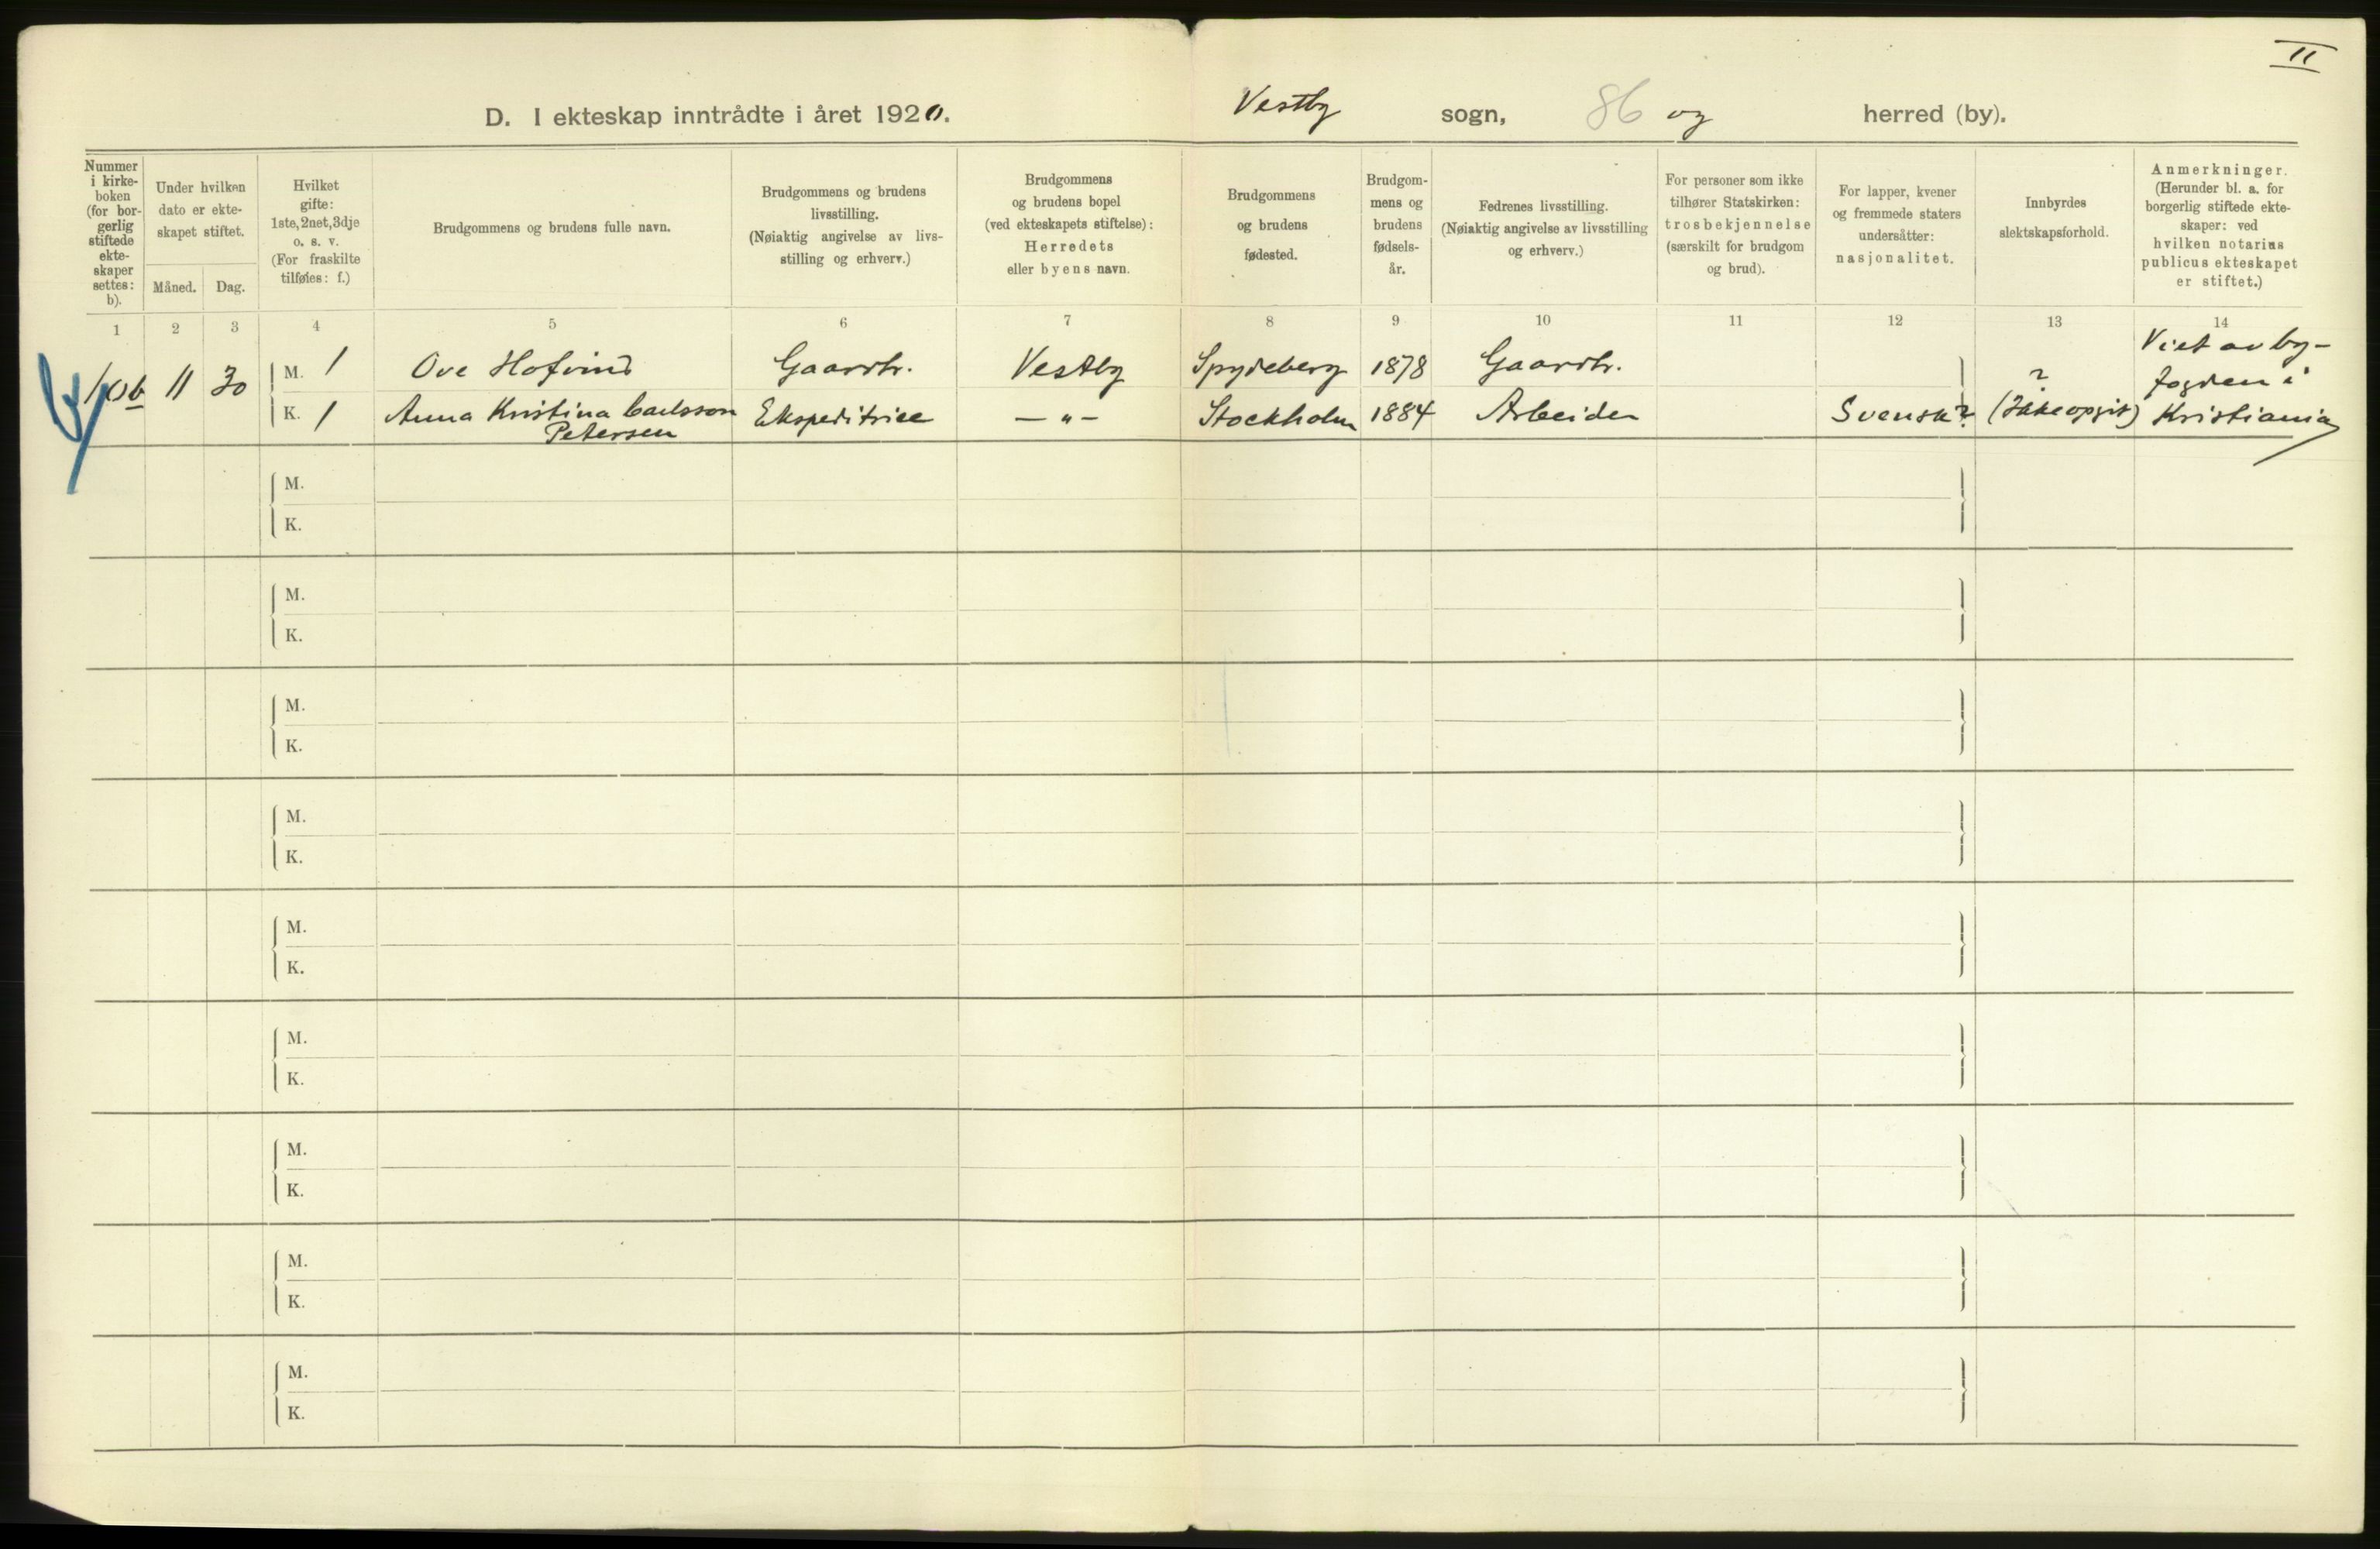 II
D. I ekteskap inntrådte i året 1920.
Vestby sogn, 86 og herred (by).
Nummer i kirke-boken (for bor-gerlig stiftede ekte-skaper settes: b).
Under hvilken dato er ekte-skapet stiftet.
Måned.
Dag.
Hvilket gifte: 1ste, 2net, 3dje o. s. v. (For fraskilte tilføies: f.)
Brudgommens og brudens fulle navn.
Brudgommens og brudens livsstilling. (Nøiaktig angivelse av livs-stilling og erhverv.)
Brudgommens og brudens bopel (ved ekteskapets stiftelse): Herredets eller byens navn.
Brudgommens og brudens fødested.
Brudgom-mens og brudens fødsels-år.
Fedrenes livsstilling. (Nøiaktig angivelse av livsstilling og erhverv.)
For personer som ikke tilhører Statskirken: trosbekjennelse (særskilt for brudgom og brud).
For lapper, kvener og fremmede staters undersåtter: nasjonalitet.
Innbyrdes slektskapsforhold.
Anmerkninger. (Herunder bl. a. for borgerlig stiftede ekte-skaper: ved hvilken notarius publicus ekteskapet er stiftet.)
1 2 3 4 5 6 7 8 9 10 11 12 13 14
11 30
M. 1 Ove Hofvind Gaardbr. Vestby Spydeberg 1878 Gaardbr. ? Viet av by-fogden i
K. 1 Anna Kristina Carlsson Petersen Ekspeditrice — " — Stockholm 1884 Arbeider Svensk? (Ikke opgit) Kristiania
M.
K.
M.
K.
M.
K.
M.
K.
M.
K.
M.
K.
M.
K.
M.
K.
M.
K.